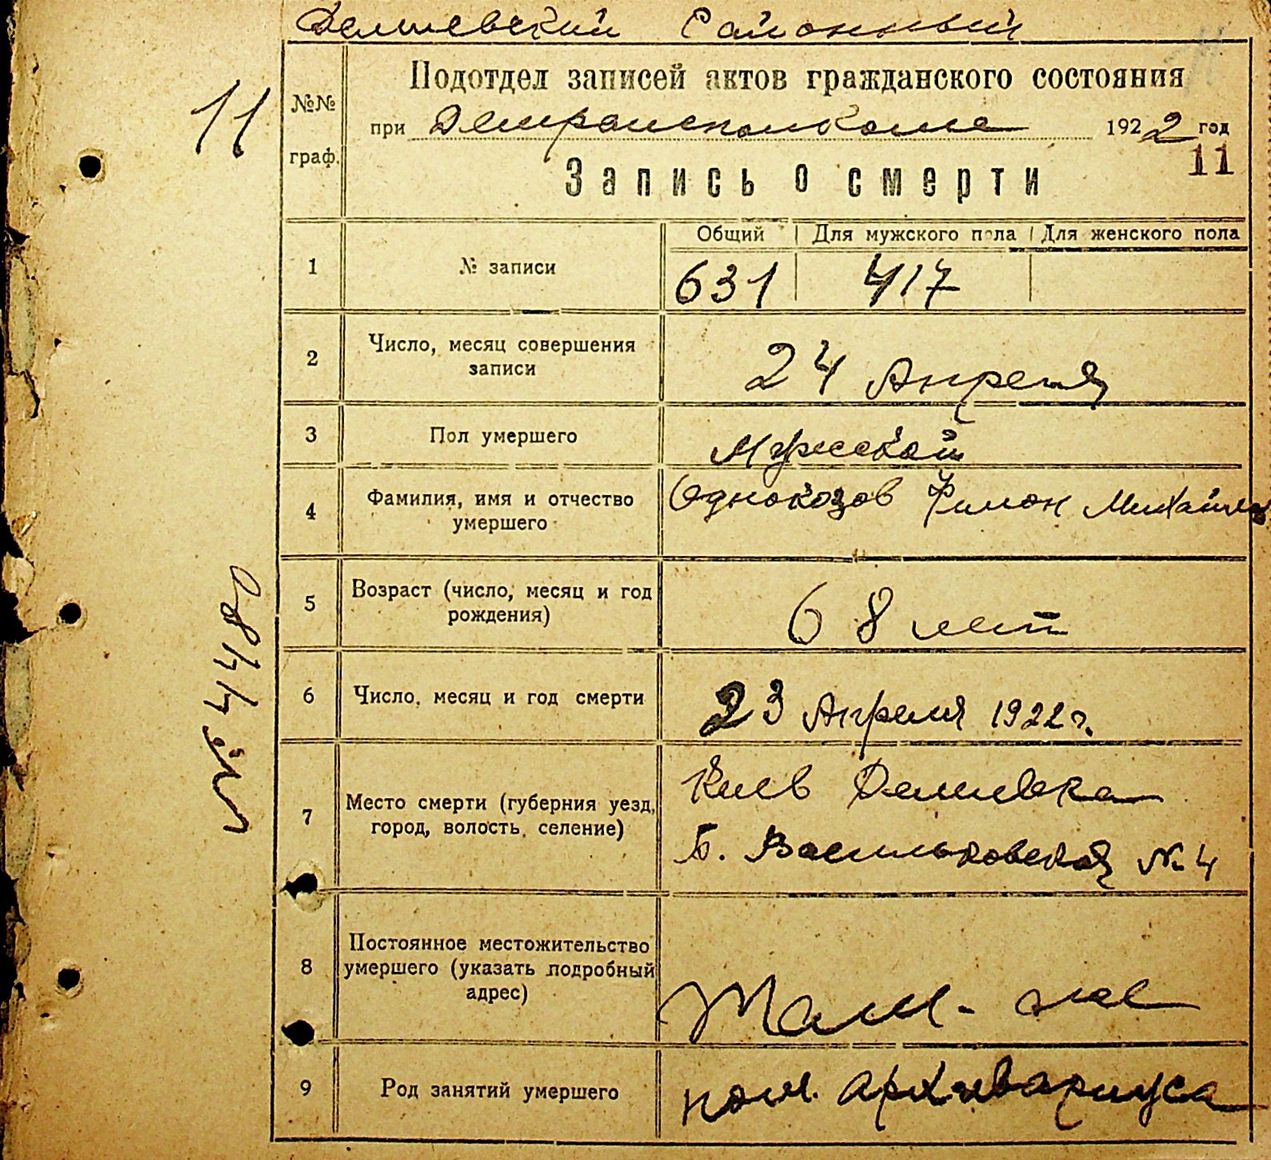 Демиевский Районный
11
№№ граф.
Подотдел записей актов гражданского состояния
при Демрайисполкоме 1922 год
11
Запись о смерти
1 № записи
Общий Для мужского пола Для женского пола
631 417
2 Число, месяц совершения записи
24 Апреля
3 Пол умершего
Мужской
4 Фамилия, имя и отчество умершего
Однокозов Филон Михайлов
5 Возраст (число, месяц и год рождения)
68 лет
№ 4480
6 Число, месяц и год смерти
23 Апреля 1922 г.
7 Место смерти (губерния уезд, город, волость, селение)
Киев Демиевка
Б. Васильковская № 4
8 Постоянное местожительство умершего (указать подробный адрес)
Там-же
9 Род занятий умершего
пом. архивариуса